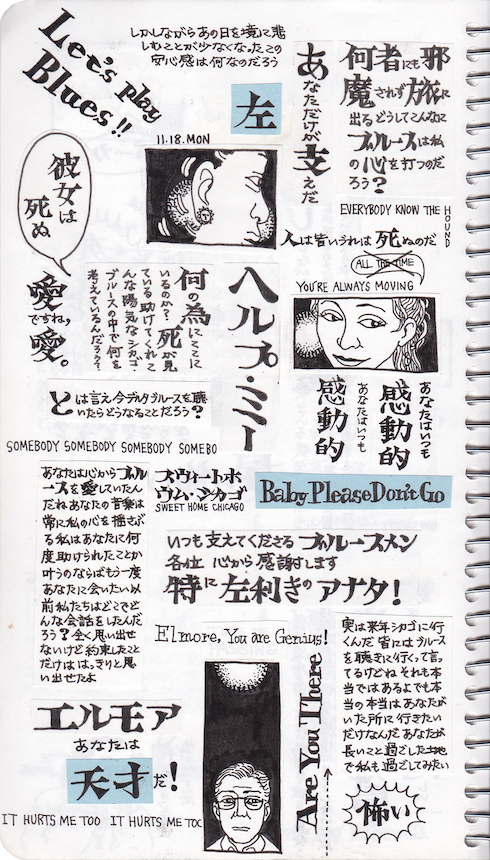 Let's play
Blues!!
しかしながらあの日を境に悲
しむことが少なくなったこの
安心感は何なのだろう
左
11.18.MON
あなただけが支えだ
何者にも邪
魔されず旅に
出るどうしてこんなに
ブルースは私
の心を打つのだ
ろう?
彼女は
死ぬ
EVERYBODY KNOW THE HOUND
人は皆いづれは死ぬのだ
ALL THE TIME
YOU'RE ALWAYS MOVING
愛
ですね,
愛。
何の為にここに
いるのか?死が見
ている助けてくれて
んな陽気なシカゴ・
ブルースの中で何を
考えているんだろう?
ヘルプ・ミー
とは言え今デルタブルースを聴
いたらどうなることだろう?
あなたはいつも
感動的
あなたはいつも
感動的
SOMEBODY SOMEBODY SOMEBODY SOMEBO
あなたは心からブル
ースを愛していたん
だねあなたの音楽は
常に私の心を揺さぶ
る私はあなたに何
度助けられたことか
叶うのならばもう一度
あなたに会いたい以
前私たちはどこでど
んな会話をしたんだ
ろう?全く思い出せ
ないけど約束したこと
だけははっきりと思
い出せたよ
スウィートホ
ウム・シカゴ
SWEET HOME CHICAGO
Baby Please Don't Go
いつも支えてくださる ブルースメン
各位 心から感謝します
特に左利きのアナタ!
Elmore, You are Genius!
エルモア
あなたは
天才だ!
IT HURTS ME TOO IT HURTS ME TOO
Are You There
実は来年シカゴに行
くんだ 皆にはブルース
を聴きに行くって言っ
てるけどね それも本
当ではあるよでも本
当の本当はあなたが
いた所に行きたい
だけなんだ あなたが
長いこと過ごした土地
で私も過ごしてみたい
怖い